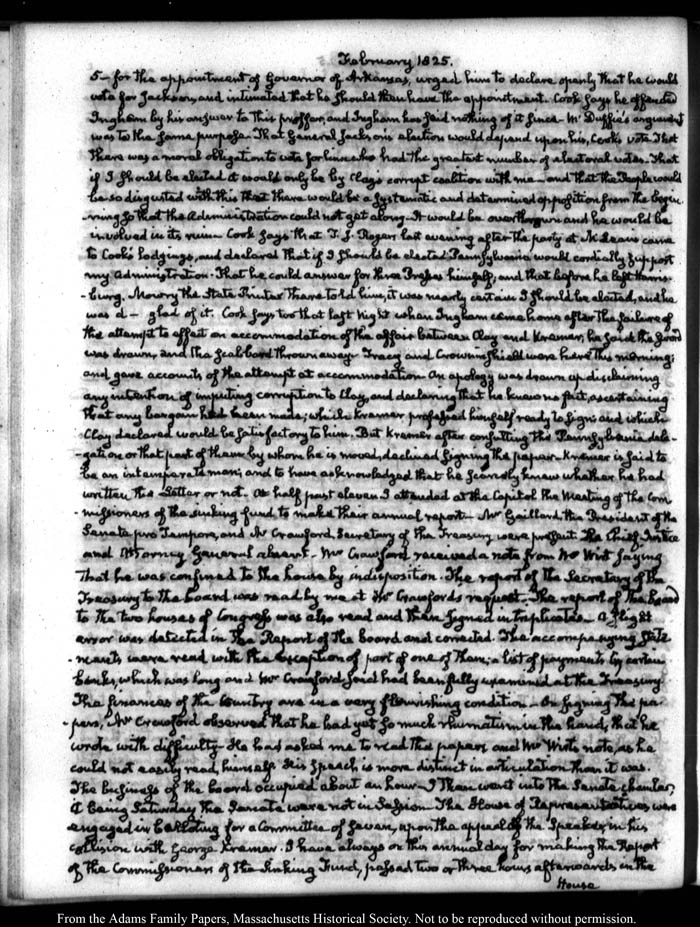 February 1825.
5— for the appointment of Governor of Arkansas, urged him to declare openly that he would
vote for Jackson, and intimated that he should then have the appointment. Cook says he offended
Ingham by his answer to this proffer, and Ingham has said nothing of it since. McDuffie's argument
was to the same purpose. That General Jackson's election would depend upon his, Cook's vote. That
there was a moral obligation to vote for him who had the greatest number of electoral votes. That
if I should be elected it would only be by Clay's corrupt coalition with me— and that the People would
be so disgusted with this that there would be a systematic and determined opposition from the begin-
-ning so that the Administration could not get along. It would be overthrown and he would be
involved in its ruin. Cook says that T. J. Rogers last evening after the party at McLean's came
to Cook's lodgings, and declared that if I should be elected Pennsylvania would cordially support
my Administration. That he could answer for three Presses himself, and that before he left Harris-
-burg, Mowry the State Printer there told him, it was nearly certain I should be elected, and he
was d— glad of it. Cook says too that last Night when Ingham came home after the failure of
the attempt to effect an accommodation of the affair between Clay and Kremer, he said the sword
was drawn, and the scabbard thrown away— Tracy and Crowninshield were here this morning;
and gave accounts of the attempt at accommodation. An apology was drawn up disclaiming
any intention of imputing corruption to Clay, and declaring that he knew no fact, ascertaining
that any bargain had been made; which Kremer professed himself ready to sign and which
Clay declared would be satisfactory to him. But Kremer after consulting the Pennsylvania dele-
-gation or that part of them by whom he is moved, declined signing the paper— Kremer is said to
be an intemperate man; and to have acknowledged that he scarcely knew whether he had
written the Letter or not. At half past eleven I attended at the Capitol the Meeting of the Com-
-missioners of the sinking fund to make their annual report— Mr Gaillard the President of the
Senate pro Tempore, and Mr Crawford, Secretary of the Treasury were present. The Chief Justice
and Attorney General absent— Mr Crawford received a note from Mr Wirt saying
that he was confined to the house by indisposition. The report of the Secretary of the
Treasury to the board was read by me at Mr Crawford's request. The report of the board
to the two houses of Congress was also read and then signed in triplicates. A slight
error was detected in the Report of the board and corrected. The accompanying state
-ments were read with the exception of part of one of them; a list of payments by certain
banks, which was long and Mr Crawford said had been fully examined at the Treasury.
The finances of the Country are in a very flourishing condition— On signing the pa-
-pers, Mr Crawford observed that he had yet so much rhumatism in the hand, that he
wrote with difficulty— He had asked me to read the papers and Mr Wirt's note, as he
could not easily read, himself. His speech is more distinct in articulation than it was.
The business of the board occupied about an hour— I then went into the Senate chamber,
it being Saturday the Senate were not in Session— The House of Representatives, were
engaged in balloting for a Committee of seven, upon the appeal of the Speaker, in his
collision with George Kremer. I have always on this annual day for making the Report
of the Commissioners of the Sinking Fund, passed two or three hours afterwards in the
House
From the Adams Family Papers, Massachusetts Historical Society. Not to be reproduced without permission.